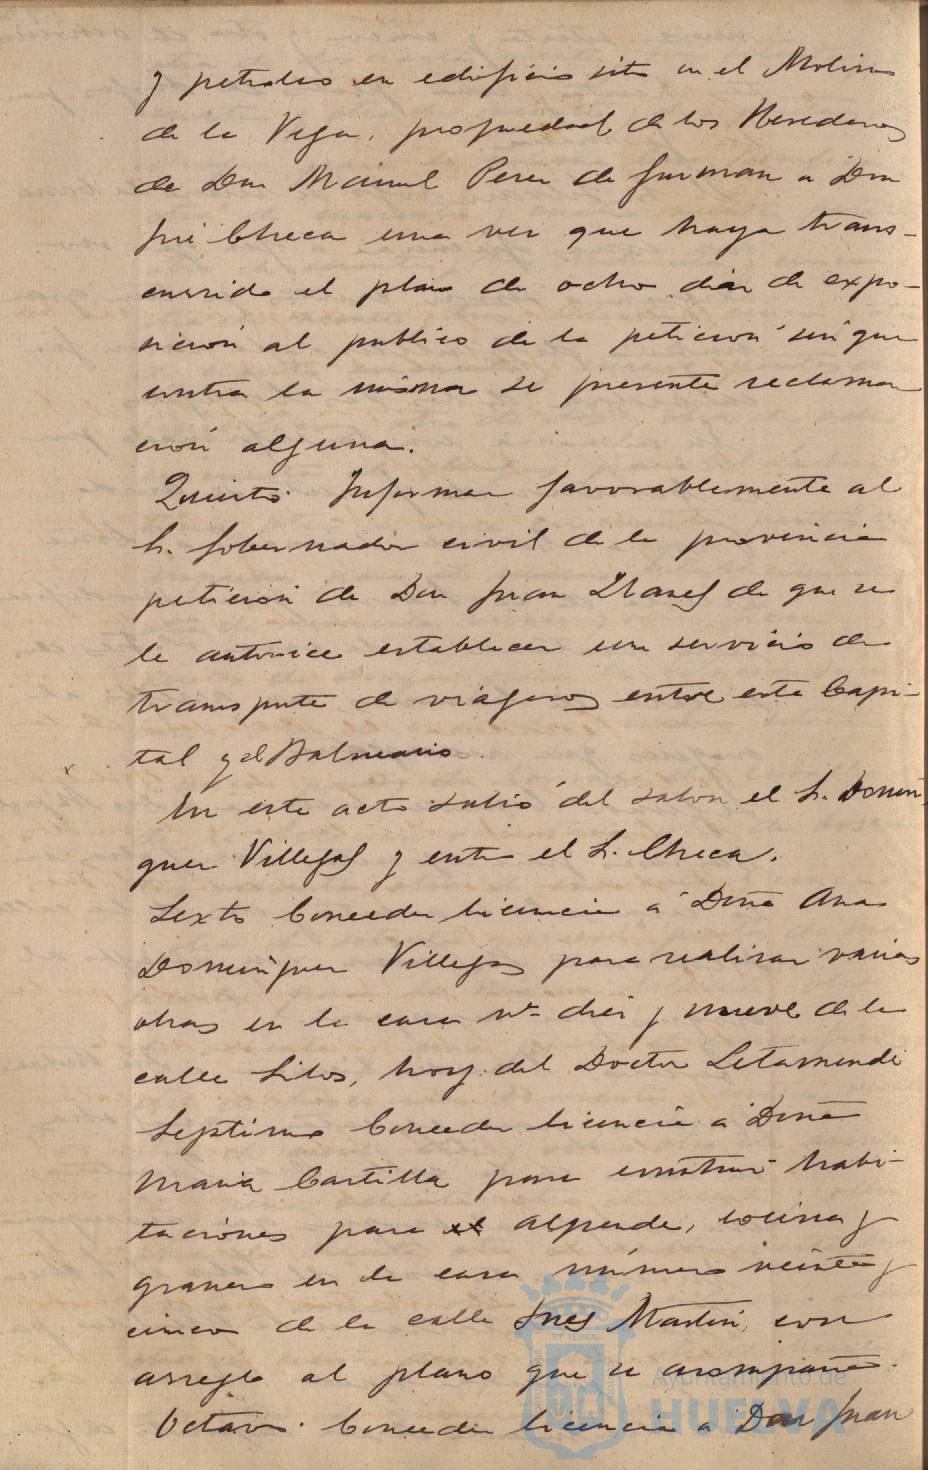 y petroleo en edificio sito en el Molino
de la Vega, propiedad de los Herederos
de Don Manuel Perez de Guzman a Don
José Checa una vez que haya trans-
currido el plazo de ocho dias de expo-
sición al publico de la petición sin que
contra la misma se presente reclama
ción alguna.
Quinto. Informar favorablemente al
S. Gobernador civil de la provincia
petición de Don Juan Llanes de que se
le autorice establecer un servicio de
transporte de viageros entre esta Capi-
tal y el Balneario.
En este acto salió del salon el S. Domin
guez Villegas y entro el S. Checa.
Sexto Conceder licencia á Doña Ana
Dominguez Villegas para realizar varias
obras en la casa nº diez y nueve de la
calle Silos, hoy del Doctor Letamendi
Septimo Conceder licencia a Doña
Maria Castilla para construir habi-
taciones para el alpende, cocina y
granero en la casa número veinte y
cinco de la calle Ines Martin, con
arreglo al plano que se acompaña.
Octavo. Conceder licencia a Don Juan
Ayuntamiento de
HUELVA